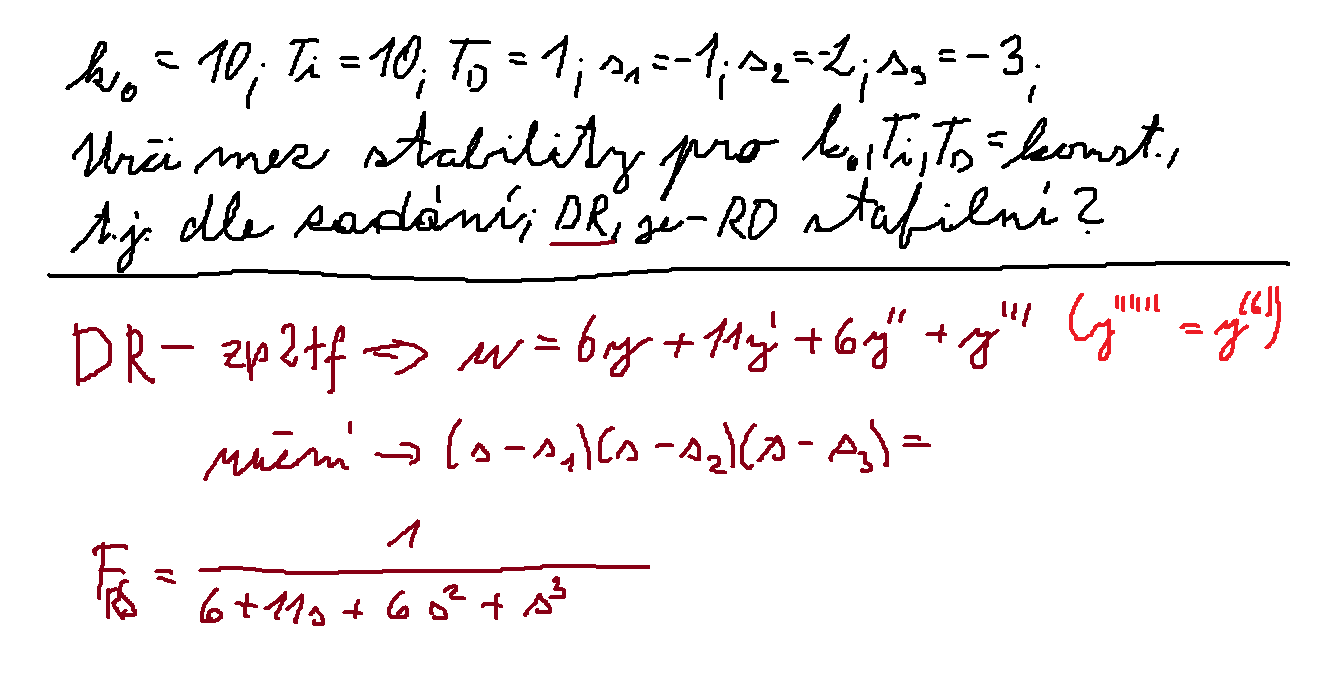 k₀ = 10; Ti = 10; T_D = 1; s₁ = -1; s₂ = -2; s₃ = -3;
Urči mez stability pro k₀, Ti, T_D = konst.,
t.j. dle zadání; DR, je-RO stabilní?
DR - zp2tf ⇒ u = 6y + 11y' + 6y'' + y''' (y'''''' = y⁽⁶⁾)
ruční → (s - s₁)(s - s₂)(s - s₃) =
F_RS = 1 / (6 + 11s + 6s² + s³)